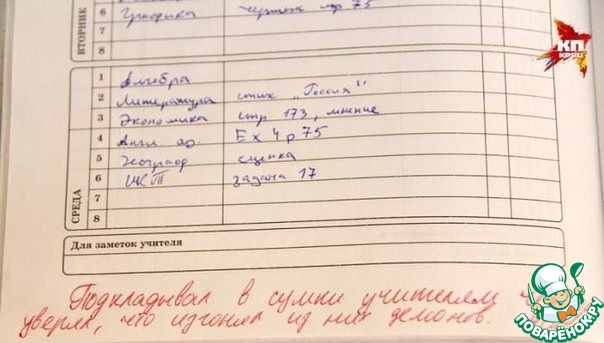 ВТОРНИК
6 Графика чертеж стр 75
7
8
КП
СРЕДА
1 Алгебра
2 Литература стих „Россия"
3 Экономика стр 173, мнение
4 Англ. яз. Ex 4 p 75
5 Географ сценка
6 ИКТ задача 17
7
8
Для заметок учителя
Подкладывал в сумки учителям
уверял, что изгонял из них демонов.
ПОВАРЁНОК.РУ